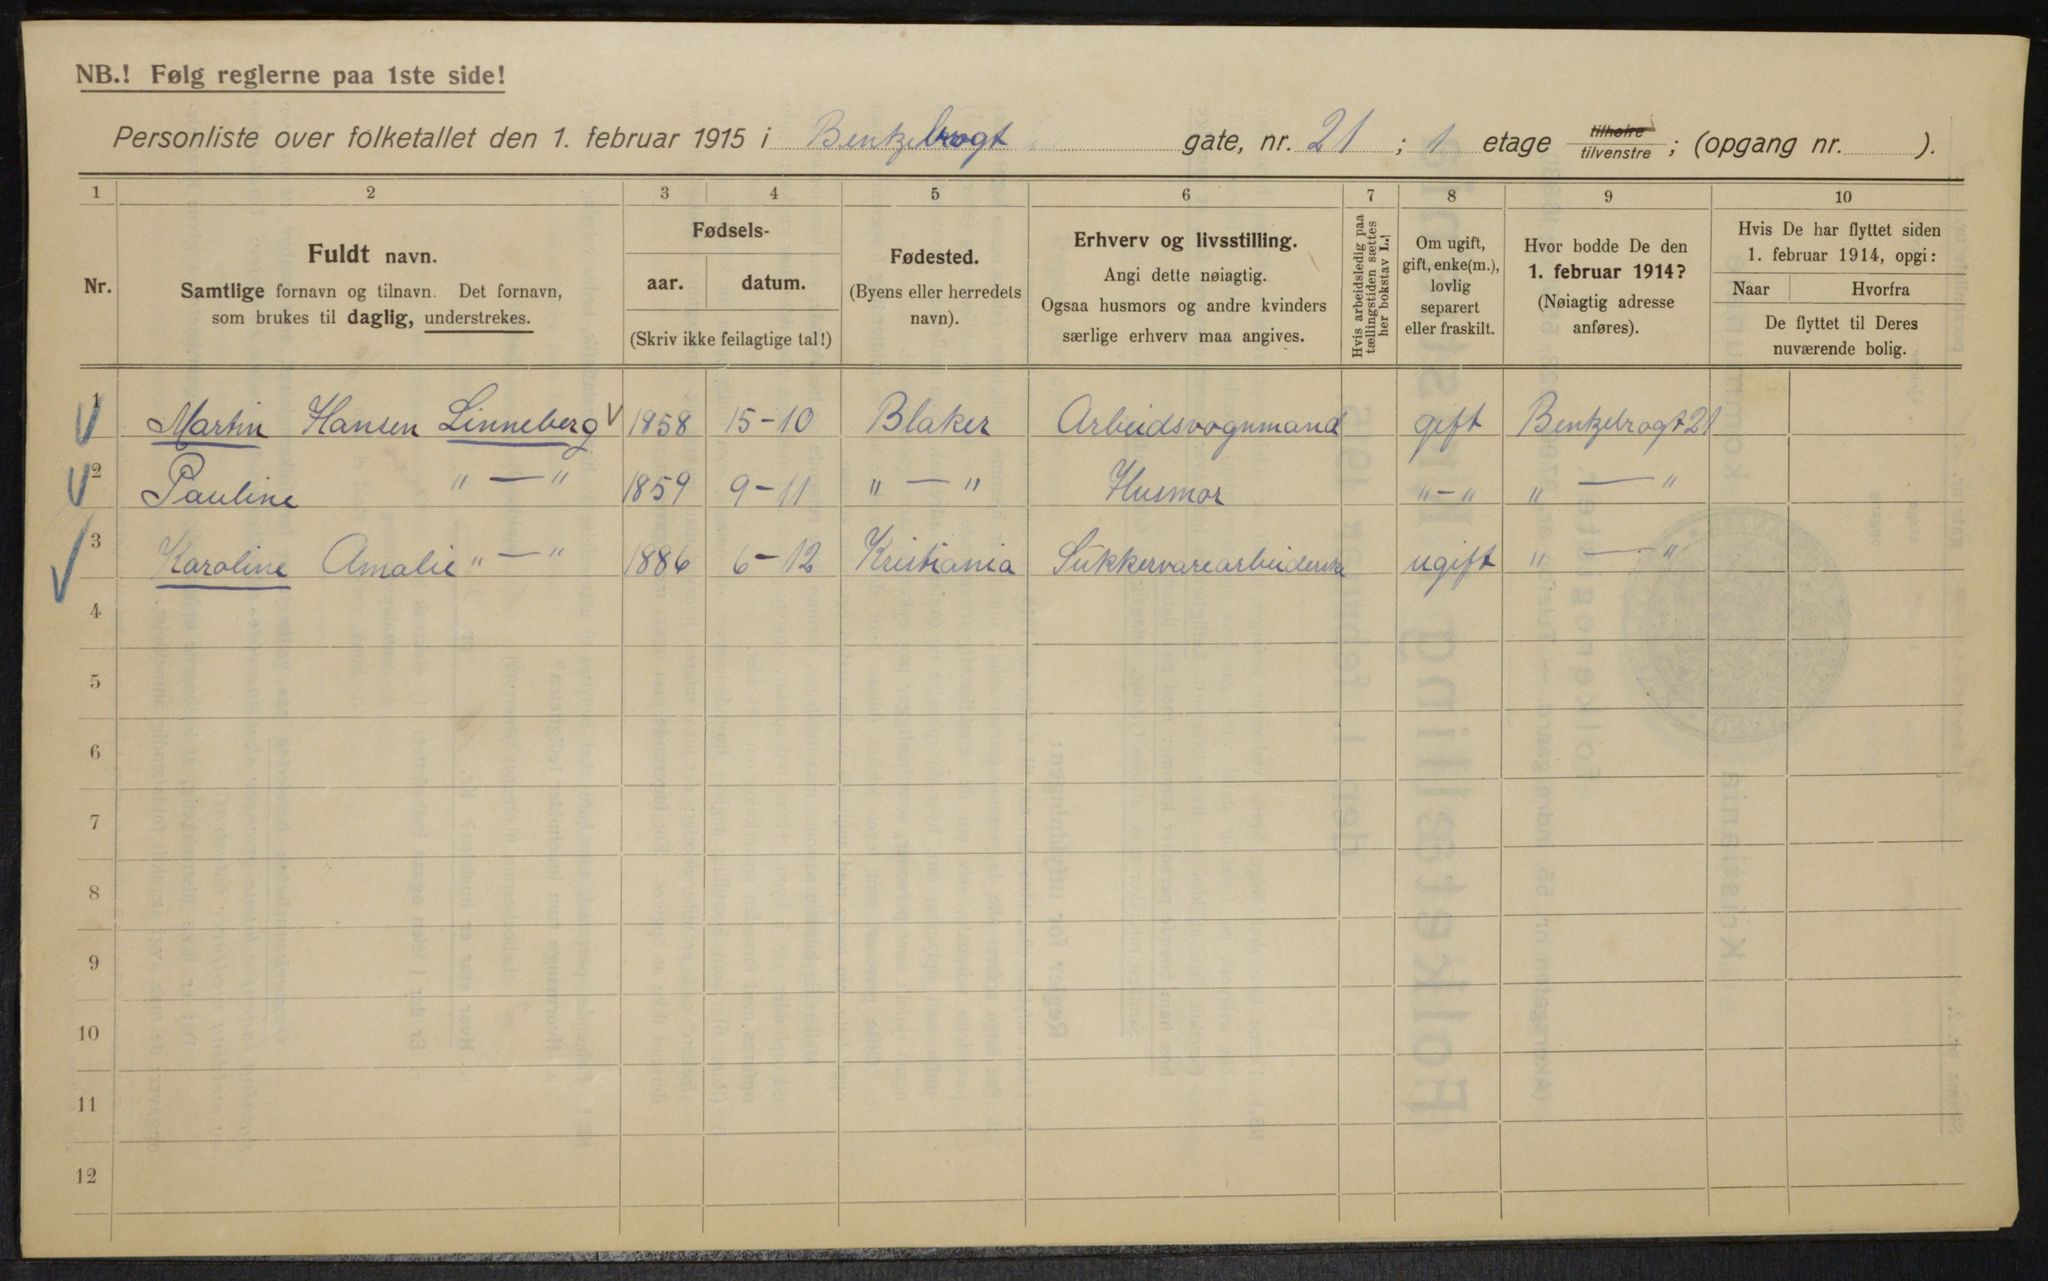 NB.! Følg reglerne paa 1ste side!
Personliste over folketallet den 1. februar 1915 i Benkebrogt gate, nr. 21 ; 1 etage tilhøire tilvenstre ; (opgang nr. ).
1 2 3 4 5 6 7 8 9 10
Nr.
Fuldt navn.
Samtlige fornavn og tilnavn. Det fornavn,
som brukes til daglig, understrekes.
Fødsels-
aar. datum.
(Skriv ikke feilagtige tal!)
Fødested.
(Byens eller herredets
navn).
Erhverv og livsstilling.
Angi dette nøiagtig.
Ogsaa husmors og andre kvinders
særlige erhverv maa angives.
Hvis arbeidsledig paa
tællingstiden sættes
her bokstav L.!
Om ugift,
gift, enke(m.),
lovlig
separert
eller fraskilt.
Hvor bodde De den
1. februar 1914?
(Nøiagtig adresse
anføres).
Hvis De har flyttet siden
1. februar 1914, opgi:
Naar Hvorfra
De flyttet til Deres
nuværende bolig.
1 Martin Hansen Linneberg 1858 15-10 Blaker Arbeidsvognmand gift Benkebrogt 21
2 Pauline " — " 1859 9-11 " — " Husmor " - " " — "
3 Karoline Amalie " — " 1886 6-12 Kristiania Sukkervarearbeiderske ugift " — "
4
5
6
7
8
9
10
11
12